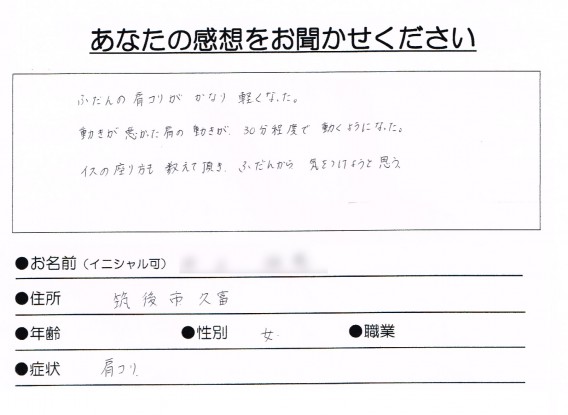 あなたの感想をお聞かせください
ふだんの肩コリが かなり 軽くなった。
動きが悪かった肩の動きが、30分程度で動くようになった。
イスの座り方も教えて頂き、ふだんから 気をつけようと思う。
●お名前（イニシャル可）
●住所 筑後市久富
●年齢 ●性別 女 ●職業
●症状 肩コリ